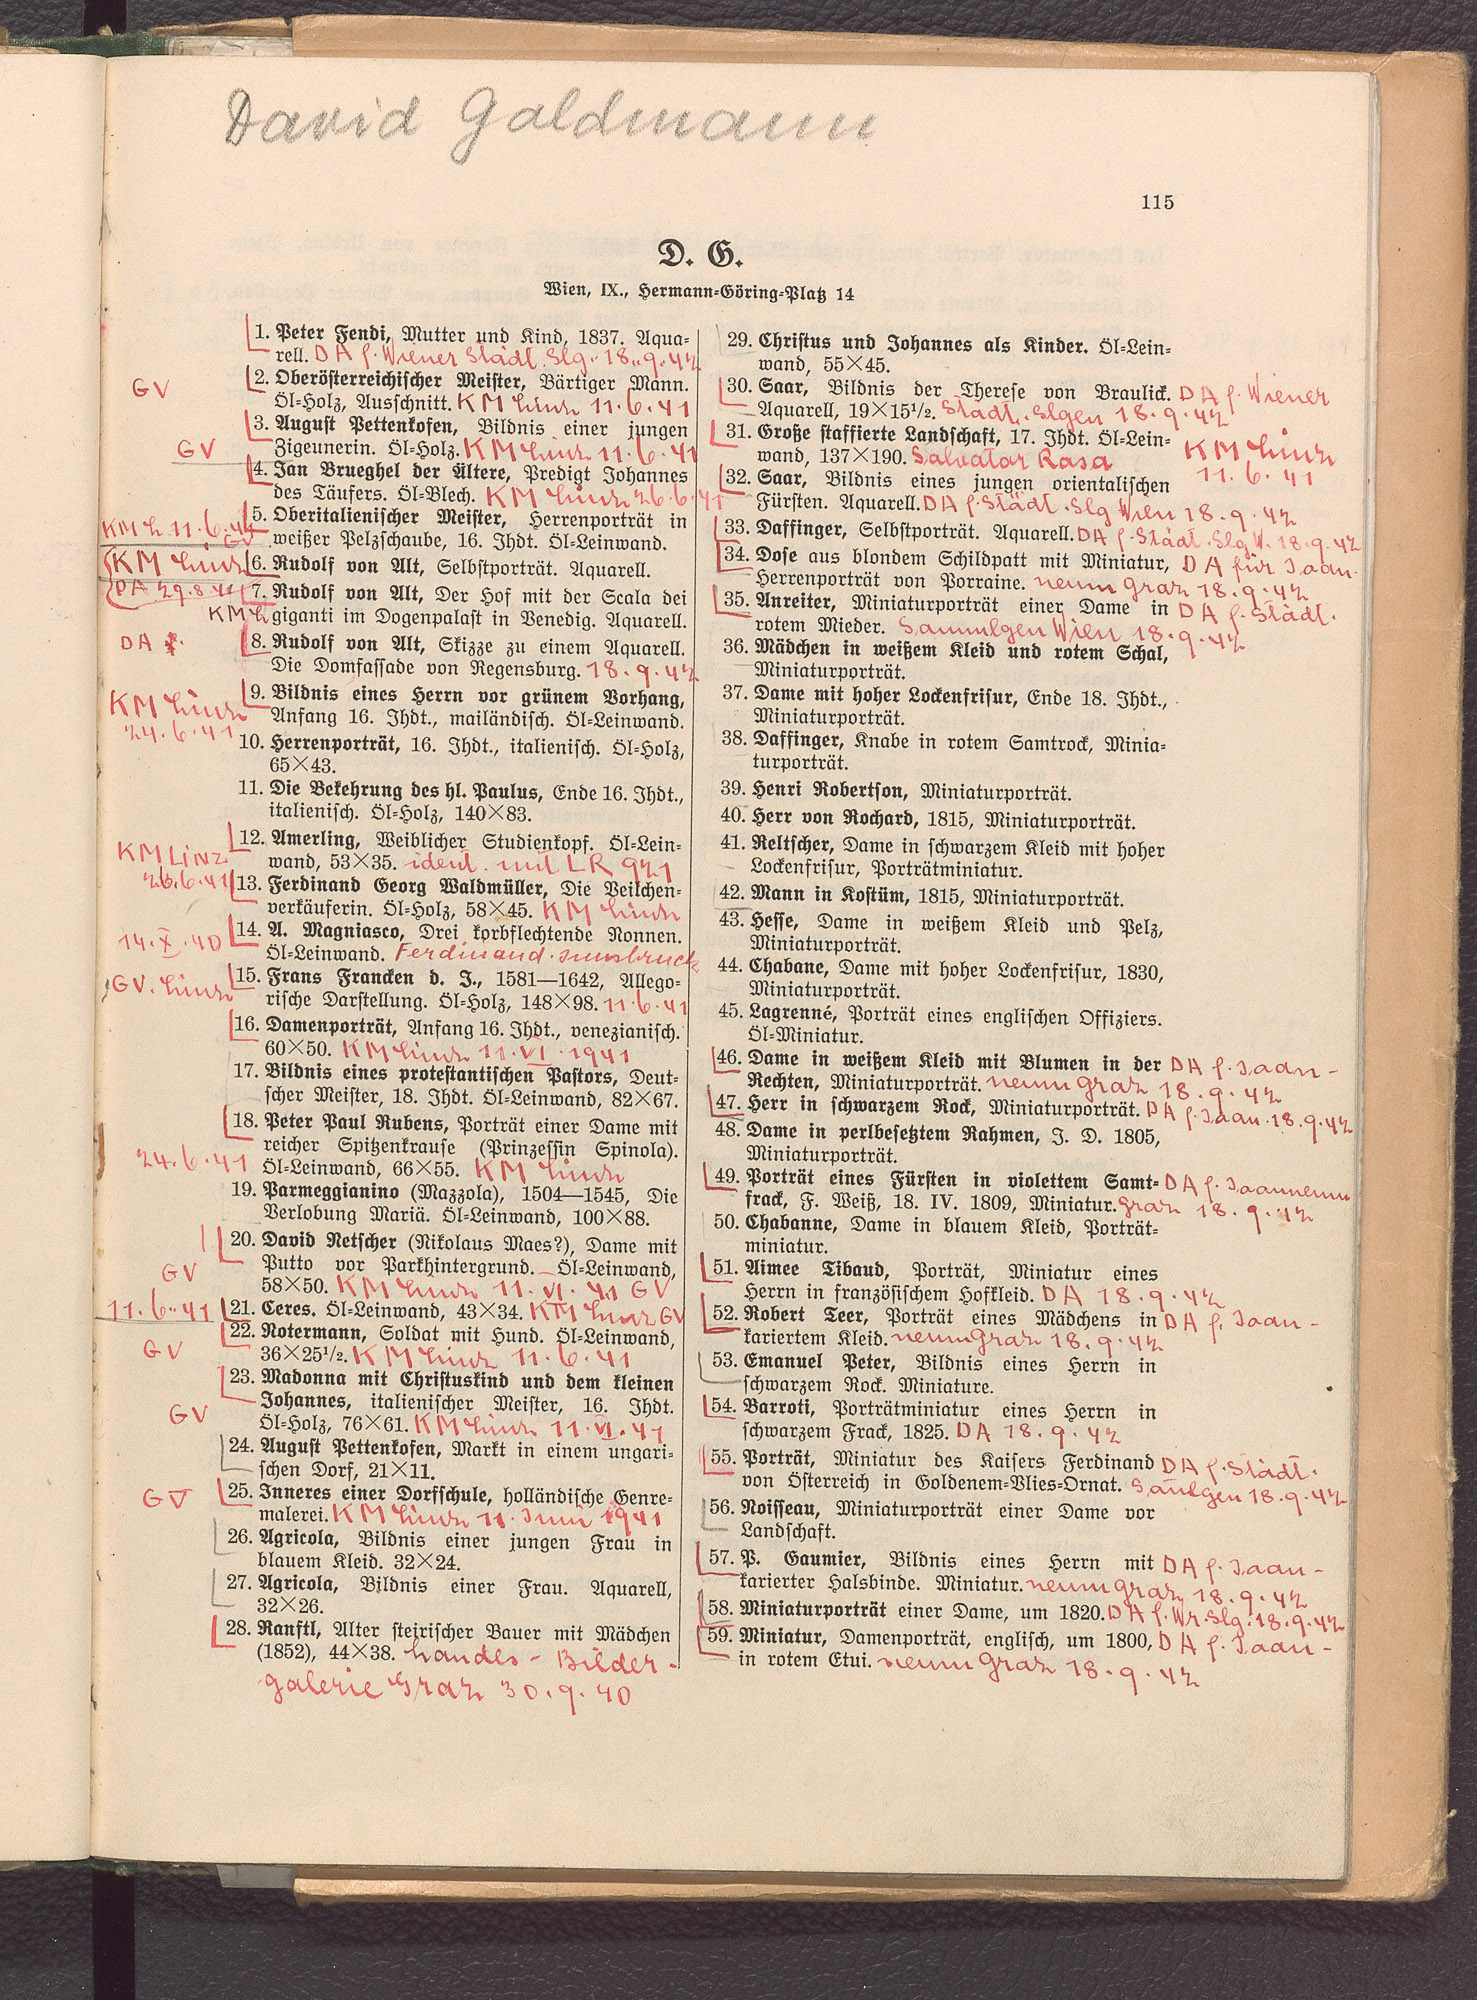 David Goldmann
115
D. G.
Wien, IX., Hermann-Göring-Platz 14
1. Peter Fendi, Mutter und Kind, 1837. Aqua-
rell. DA f. Wiener Städt. Slg. 18. 9. 42
GV
2. Oberösterreichischer Meister, Bärtiger Mann.
Öl-Holz, Ausschnitt. KM Linz 11. 6. 41
3. August Pettenkofen, Bildnis einer jungen
GV
Zigeunerin. Öl-Holz. KM Linz 11. 6. 41
4. Jan Brueghel der Ältere, Predigt Johannes
des Täufers. Öl-Blech. KM Linz 26. 6. 41
5. Oberitalienischer Meister, Herrenporträt in
KM L 11. 6. 41
GV
weißer Pelzschaube, 16. Jhdt. Öl-Leinwand.
KM Linz
6. Rudolf von Alt, Selbstporträt. Aquarell.
DA 29. 8. 41
7. Rudolf von Alt, Der Hof mit der Scala dei
KM L
giganti im Dogenpalast in Venedig. Aquarell.
DA f.
8. Rudolf von Alt, Skizze zu einem Aquarell.
Die Domfassade von Regensburg. 18. 9. 42
KM Linz
24. 6. 41
9. Bildnis eines Herrn vor grünem Vorhang,
Anfang 16. Jhdt., mailändisch. Öl-Leinwand.
10. Herrenporträt, 16. Jhdt., italienisch. Öl-Holz,
65×43.
11. Die Bekehrung des hl. Paulus, Ende 16. Jhdt.,
italienisch. Öl-Holz, 140×83.
12. Amerling, Weiblicher Studienkopf. Öl-Lein-
KM Linz
wand, 53×35. ident. mit LR 921
26. 6. 41
13. Ferdinand Georg Waldmüller, Die Veilchen-
verkäuferin. Öl-Holz, 58×45. KM Linz
14. X. 40
14. A. Magniasco, Drei korbflechtende Nonnen.
Öl-Leinwand. Ferdinand. Innsbruck
GV. Linz
15. Frans Francken d. J., 1581—1642, Allego-
rische Darstellung. Öl-Holz, 148×98. 11. 6. 41
16. Damenporträt, Anfang 16. Jhdt., venezianisch.
60×50. KM Linz 11. VI. 1941
17. Bildnis eines protestantischen Pastors, Deut-
scher Meister, 18. Jhdt. Öl-Leinwand, 82×67.
18. Peter Paul Rubens, Porträt einer Dame mit
reicher Spitzenkrause (Prinzessin Spinola).
24. 6. 41
Öl-Leinwand, 66×55. KM Linz
19. Parmeggianino (Mazzola), 1504—1545, Die
Verlobung Mariä. Öl-Leinwand, 100×88.
20. David Netscher (Nikolaus Maes?), Dame mit
Putto vor Parkhintergrund. Öl-Leinwand,
GV
58×50. KM Linz 11. VI. 41 GV
11. 6. 41
21. Ceres. Öl-Leinwand, 43×34. KM Linz GV
22. Notermann, Soldat mit Hund. Öl-Leinwand,
GV
36×25½. KM Linz 11. 6. 41
23. Madonna mit Christuskind und dem kleinen
Johannes, italienischer Meister, 16. Jhdt.
GV
Öl-Holz, 76×61. KM Linz 11. VI. 41
24. August Pettenkofen, Markt in einem ungari-
schen Dorf, 21×11.
GV
25. Inneres einer Dorfschule, holländische Genre-
malerei. KM Linz 11. Juni 1941
26. Agricola, Bildnis einer jungen Frau in
blauem Kleid. 32×24.
27. Agricola, Bildnis einer Frau. Aquarell,
32×26.
28. Ranftl, Alter steirischer Bauer mit Mädchen
(1852), 44×38. Landes-Bilder-
galerie Graz 30. 9. 40
29. Christus und Johannes als Kinder. Öl-Lein-
wand, 55×45.
30. Saar, Bildnis der Therese von Braulick. DA f. Wiener
Aquarell, 19×15½. Städt. Slgen 18. 9. 42
31. Große staffierte Landschaft, 17. Jhdt. Öl-Lein-
wand, 137×190. Salvator Rosa
KM Linz
11. 6. 41
32. Saar, Bildnis eines jungen orientalischen
Fürsten. Aquarell. DA f. Städt. Slg Wien 18. 9. 42
33. Daffinger, Selbstporträt. Aquarell. DA f. Städt. Slg W. 18. 9. 42
34. Dose aus blondem Schildpatt mit Miniatur, DA für Joan-
Herrenporträt von Porraine. neum Graz 18. 9. 42
35. Anreiter, Miniaturporträt einer Dame in DA f. Städt.
rotem Mieder. Sammlgen Wien 18. 9. 42
36. Mädchen in weißem Kleid und rotem Schal,
Miniaturporträt.
37. Dame mit hoher Lockenfrisur, Ende 18. Jhdt.,
Miniaturporträt.
38. Daffinger, Knabe in rotem Samtrock, Minia-
turporträt.
39. Henri Robertson, Miniaturporträt.
40. Herr von Rochard, 1815, Miniaturporträt.
41. Reltscher, Dame in schwarzem Kleid mit hoher
Lockenfrisur, Porträtminiatur.
42. Mann in Kostüm, 1815, Miniaturporträt.
43. Hesse, Dame in weißem Kleid und Pelz,
Miniaturporträt.
44. Chabane, Dame mit hoher Lockenfrisur, 1830,
Miniaturporträt.
45. Lagrenné, Porträt eines englischen Offiziers.
Öl-Miniatur.
46. Dame in weißem Kleid mit Blumen in der DA f. Joan-
Rechten, Miniaturporträt. neum Graz 18. 9. 42
47. Herr in schwarzem Rock, Miniaturporträt. DA f. Joan. 18. 9. 42
48. Dame in perlbesetztem Rahmen, J. D. 1805,
Miniaturporträt.
49. Porträt eines Fürsten in violettem Samt- DA f. Joanneum
frack, F. Weiß, 18. IV. 1809, Miniatur. Graz 18. 9. 42
50. Chabanne, Dame in blauem Kleid, Porträt-
miniatur.
51. Aimee Tibaud, Porträt, Miniatur eines
Herrn in französischem Hofkleid. DA 18. 9. 42
52. Robert Teer, Porträt eines Mädchens in DA f. Joan-
kariertem Kleid. neum Graz 18. 9. 42
53. Emanuel Peter, Bildnis eines Herrn in
schwarzem Rock. Miniature.
54. Barroti, Porträtminiatur eines Herrn in
schwarzem Frack, 1825. DA 18. 9. 42
55. Porträt, Miniatur des Kaisers Ferdinand DA f. Städt.
von Österreich in Goldenem-Vlies-Ornat. Samlgen 18. 9. 42
56. Noisseau, Miniaturporträt einer Dame vor
Landschaft.
57. P. Gaumier, Bildnis eines Herrn mit DA f. Joan-
karierter Halsbinde. Miniatur. neum Graz 18. 9. 42
58. Miniaturporträt einer Dame, um 1820. DA f. Wr. Slg. 18. 9. 42
59. Miniatur, Damenporträt, englisch, um 1800, DA f. Joan-
in rotem Etui. neum Graz 18. 9. 42